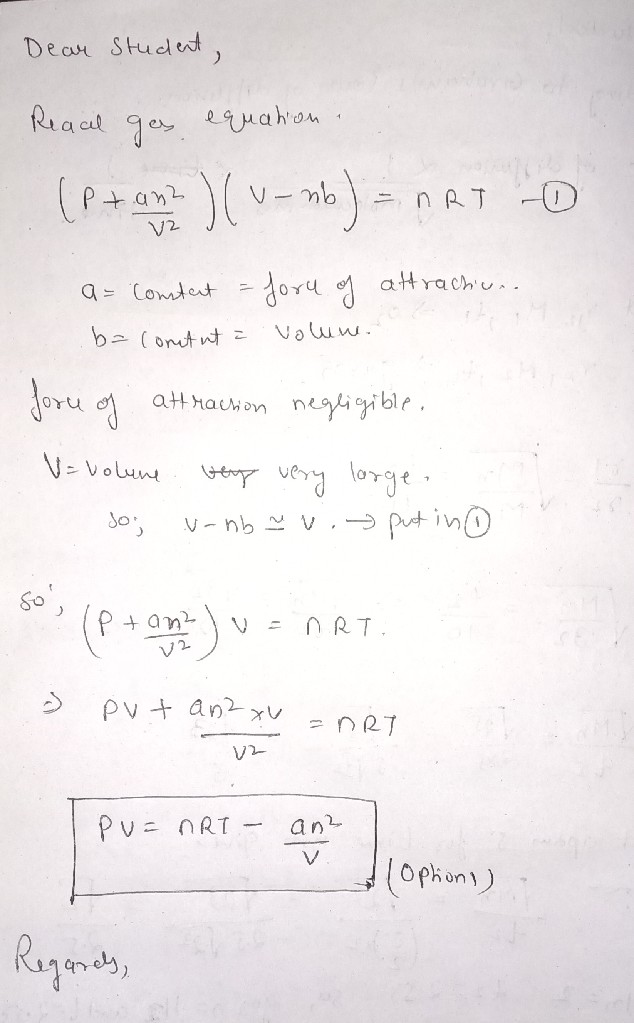 Dear Student,
Reaal gas equation.
(P + an²/V²)(V - nb) = nRT - ①
a = constant = force of attraction..
b = constnt = Volume.
force of attraction negligible.
V = Volume very large.
So; V - nb ≃ V. → put in ①
so', (P + an²/V²) V = nRT.
⇒ PV + an² x V / V² = nRT
PV = nRT - an²/V (Option 1)
Regards,